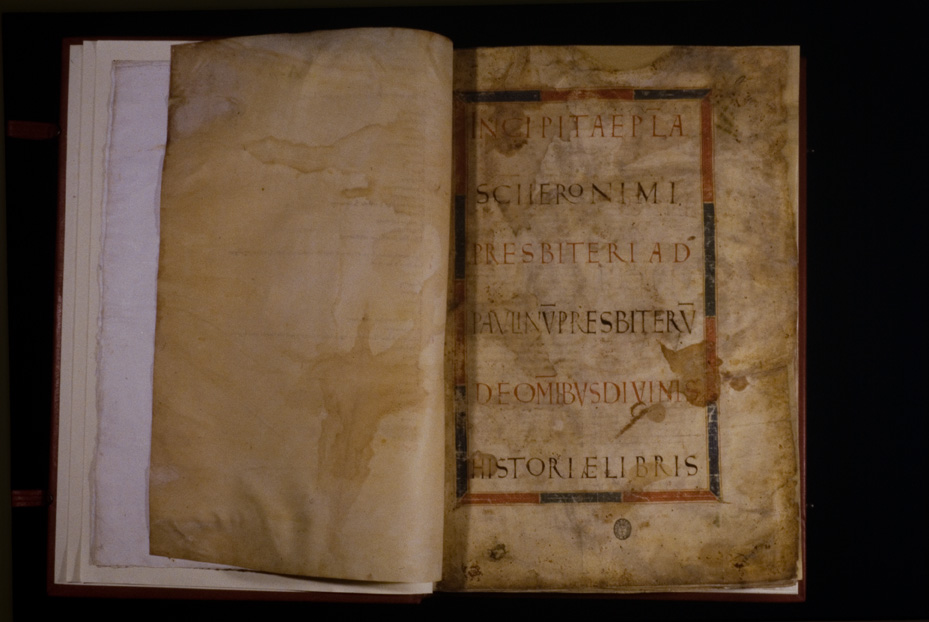 INCIPITAEP̅LA
SC̅IHERONIMI.
PRESBITERIAD
PAVLINV̅PRESBITERV̅
DEOM̅IBVSDIVINIS
HISTORIÆLIBRIS